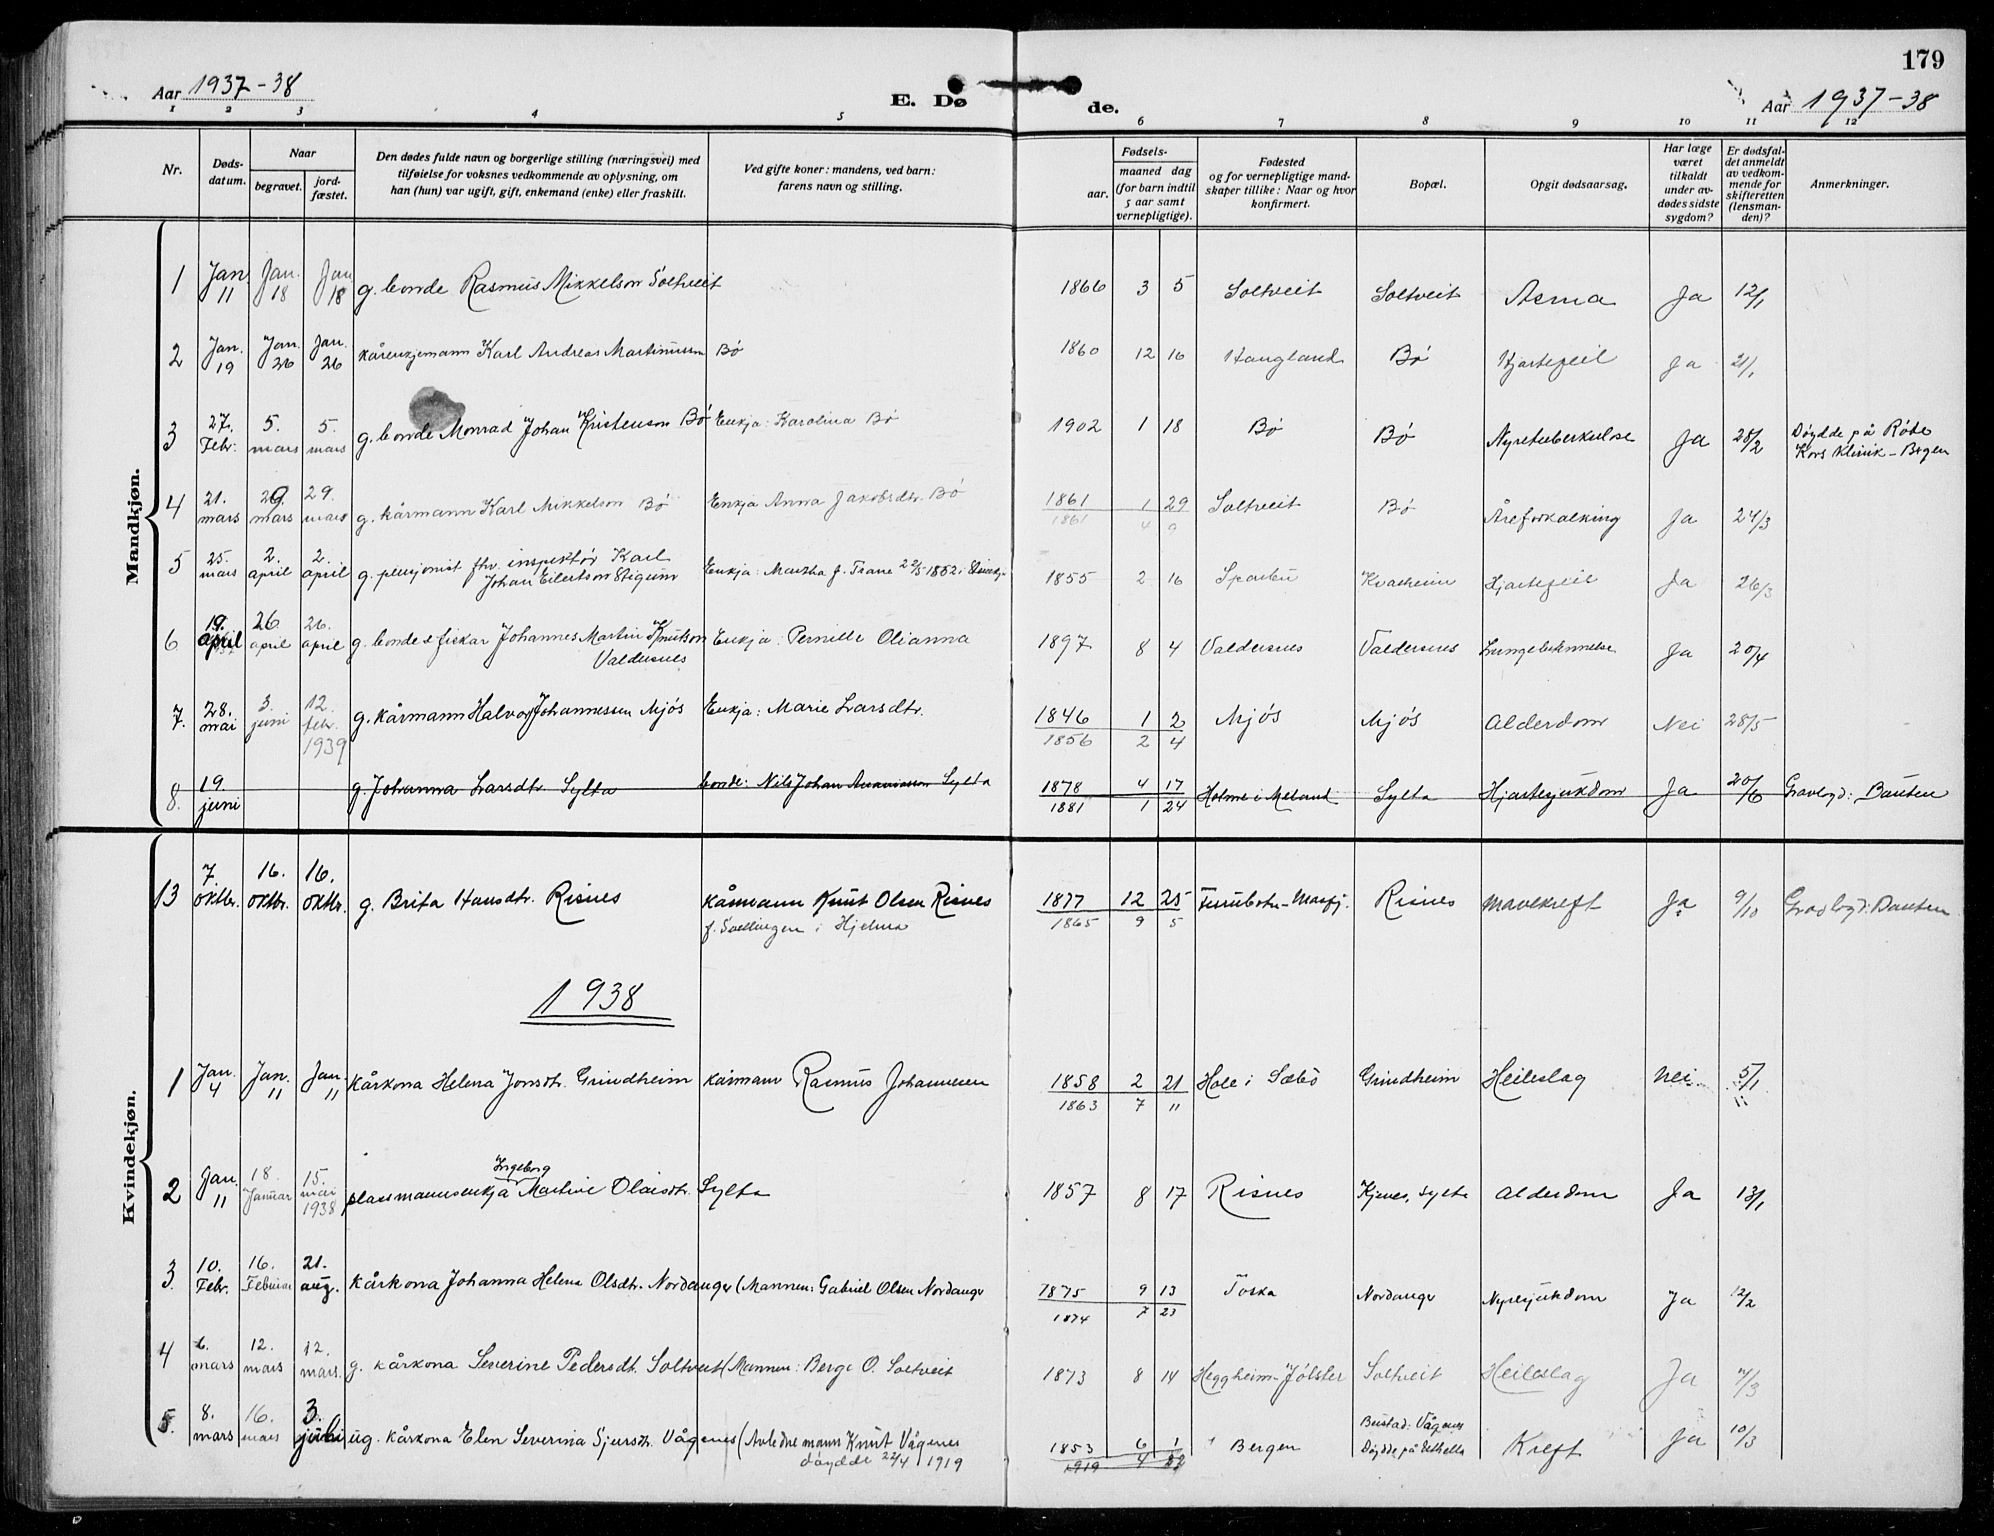 179
Aar 1937-38
E. Dø de.
Aar 1937-38
1 2 3 4 5 6 7 8 9 10 11 12
Nr.
Døds-datum.
Naar
begravet.
jord-fæstet.
Den dødes fulde navn og borgerlige stilling (næringsvei) med
tilføielse for voksnes vedkommende av oplysning, om
han (hun) var ugift, gift, enkemand (enke) eller fraskilt.
Ved gifte koner: mandens, ved barn:
farens navn og stilling.
Fødsels-
aar.
maaned dag
(for barn indtil
5 aar samt
vernepligtige).
Fødested
og for vernepligtige mand-
skaper tillike: Naar og hvor
konfirmert.
Bopæl.
Opgit dødsaarsag.
Har læge
været
tilkaldt
under av-
dødes sidste
sygdom?
Er dødsfal-
det anmeldt
av vedkom-
mende for
skifteretten
(lensman-
den)?
Anmerkninger.
Mandkjøn.
1 Jan. 11 Jan. 18 Jan 18 g. bonde Rasmus Mikkelson Soltveit 1866 3 5 Soltveit Soltveit Asma Ja 12/1
2 Jan. 19 Jan. 26 Jan. 26 kårenkjemann Karl Andreas Martinussen Bø 1860 12 16 Haugland Bø Hjartefeil Ja 21/1
3 27. Febr. 5. mars 5. mars g. bonde Monrad Johan Kristenson Bø Enkja: Karolina Bø 1902 1 18 Bø Bø Nyretuberkulose Ja 28/2 Døydde på Røde
Kors Klinik - Bergen
4 21. mars 29. mars 29. mars g. kårmann Karl Mikkelson Bø Enkja Anna Jakobsdtr. Bø 1861 1 29 Soltveit Bø Åreforkalking Ja 24/3
1861 4 9
5 25. mars 2. april 2. april g. pensjonist fhv. inspektør Karl
Johan Eilertson Stigum Enkja: Martha f. Trane 22/5-1852 i 1855 2 16 Sparbu Kvasheim Hjartefeil Ja 26/3
6 19. april 26 april 26. april g. bonde & fiskar Johannes Martin Knutson
Valdersnes Enkja: Pernille Olianna 1897 8 4 Valdersnes Valdersnes Lungebetennelse Ja 20/4
7. 28. mai 3. juni 12. febr. 1939 g. kårmann Halvor Johannessen Mjøs Enkja: Marie Larsdtr. 1846 1 2 Mjøs Mjøs Alderdom Nei 28/5
1856 2 4
8. 19. juni g. Johanna Larsdtr Sylta bonde: Nils Johan Sylta 1878 4 17 Holme i Meland Sylta Hjartesjukdom Ja 20/6 Gravlegd: Bauten
1881 1 24
Kvindekjøn.
13 7 oktbr. 16. oktbr. 16. oktbr. g. Brita Hansdtr. Risnes kårmann Knut Olsen Risnes 1877 12 25 Furubotn - Masfj. Risnes mavekreft Ja 9/10 Gravlegd: Bauten
f. Soellingen i Hjelma 1865 9 5
1938
1 Jan. 4 Jan. 11 Jan. 11 kårkona Helena Jonsdtr. Grindheim kårmann Rasmus Johannesen 1858 2 21 Hole i Sæbø Grindheim Heileslag Nei 5/1
1863 7 11
2 Jan. 11 18. Januar 15. mai 1938 plassmannsenkja Ingeborg Martine Olaisdtr. Sylta 1857 8 17 Risnes Kjenes, Sylta Alderdom Ja 13/1
3. 10. Febr. 16. Februar 21. aug. kårkona Johanna Helena Olsdtr. Nordanger (Mannen: Gabriel Olsen Nordanger 1875 9 13 Toska Nordanger Nyresjukdom Ja 12/2
1874 7 23
4 6. mars 12. mars 12. mars. g. kårkona Severine Pedersdt. Soltveit (Mannen: Berge O. Soltveit 1873 8 14 Heggheim - Jølster Soltveit Heileslag Ja 7/3
5. 8. mars 16. mars 3. juli ug. kårkona Elen Severina Sjursdtr. Vågenes (Avledne mann Knut Vågenes
døydde 22/4 1919 1853 6 1 Bergen Bustad: Vågenes
Døydde på Bethella Kreft Ja 10/3
1919 4 22